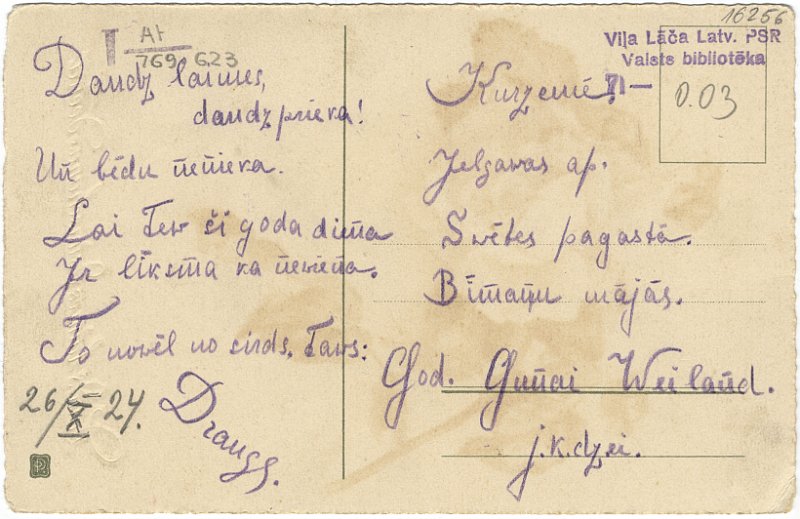 16256
At
769 623
Viļa Lāča Latv. PSR
Valsts bibliotēka
71—
0.03
Daudz laimes,
daudz prieka!
Un bēdu neneeka.
Lai Tew ši goda diena
Ir līksma ka newiena.
To nowēl no sirds. Taws:
Draugs.
26/X 24.
Kurzemē.
Jelgawas ap.
Swētes pagastā.
Bīmaņu mājās.
God. Gunai Weiland.
j.k.dzei.